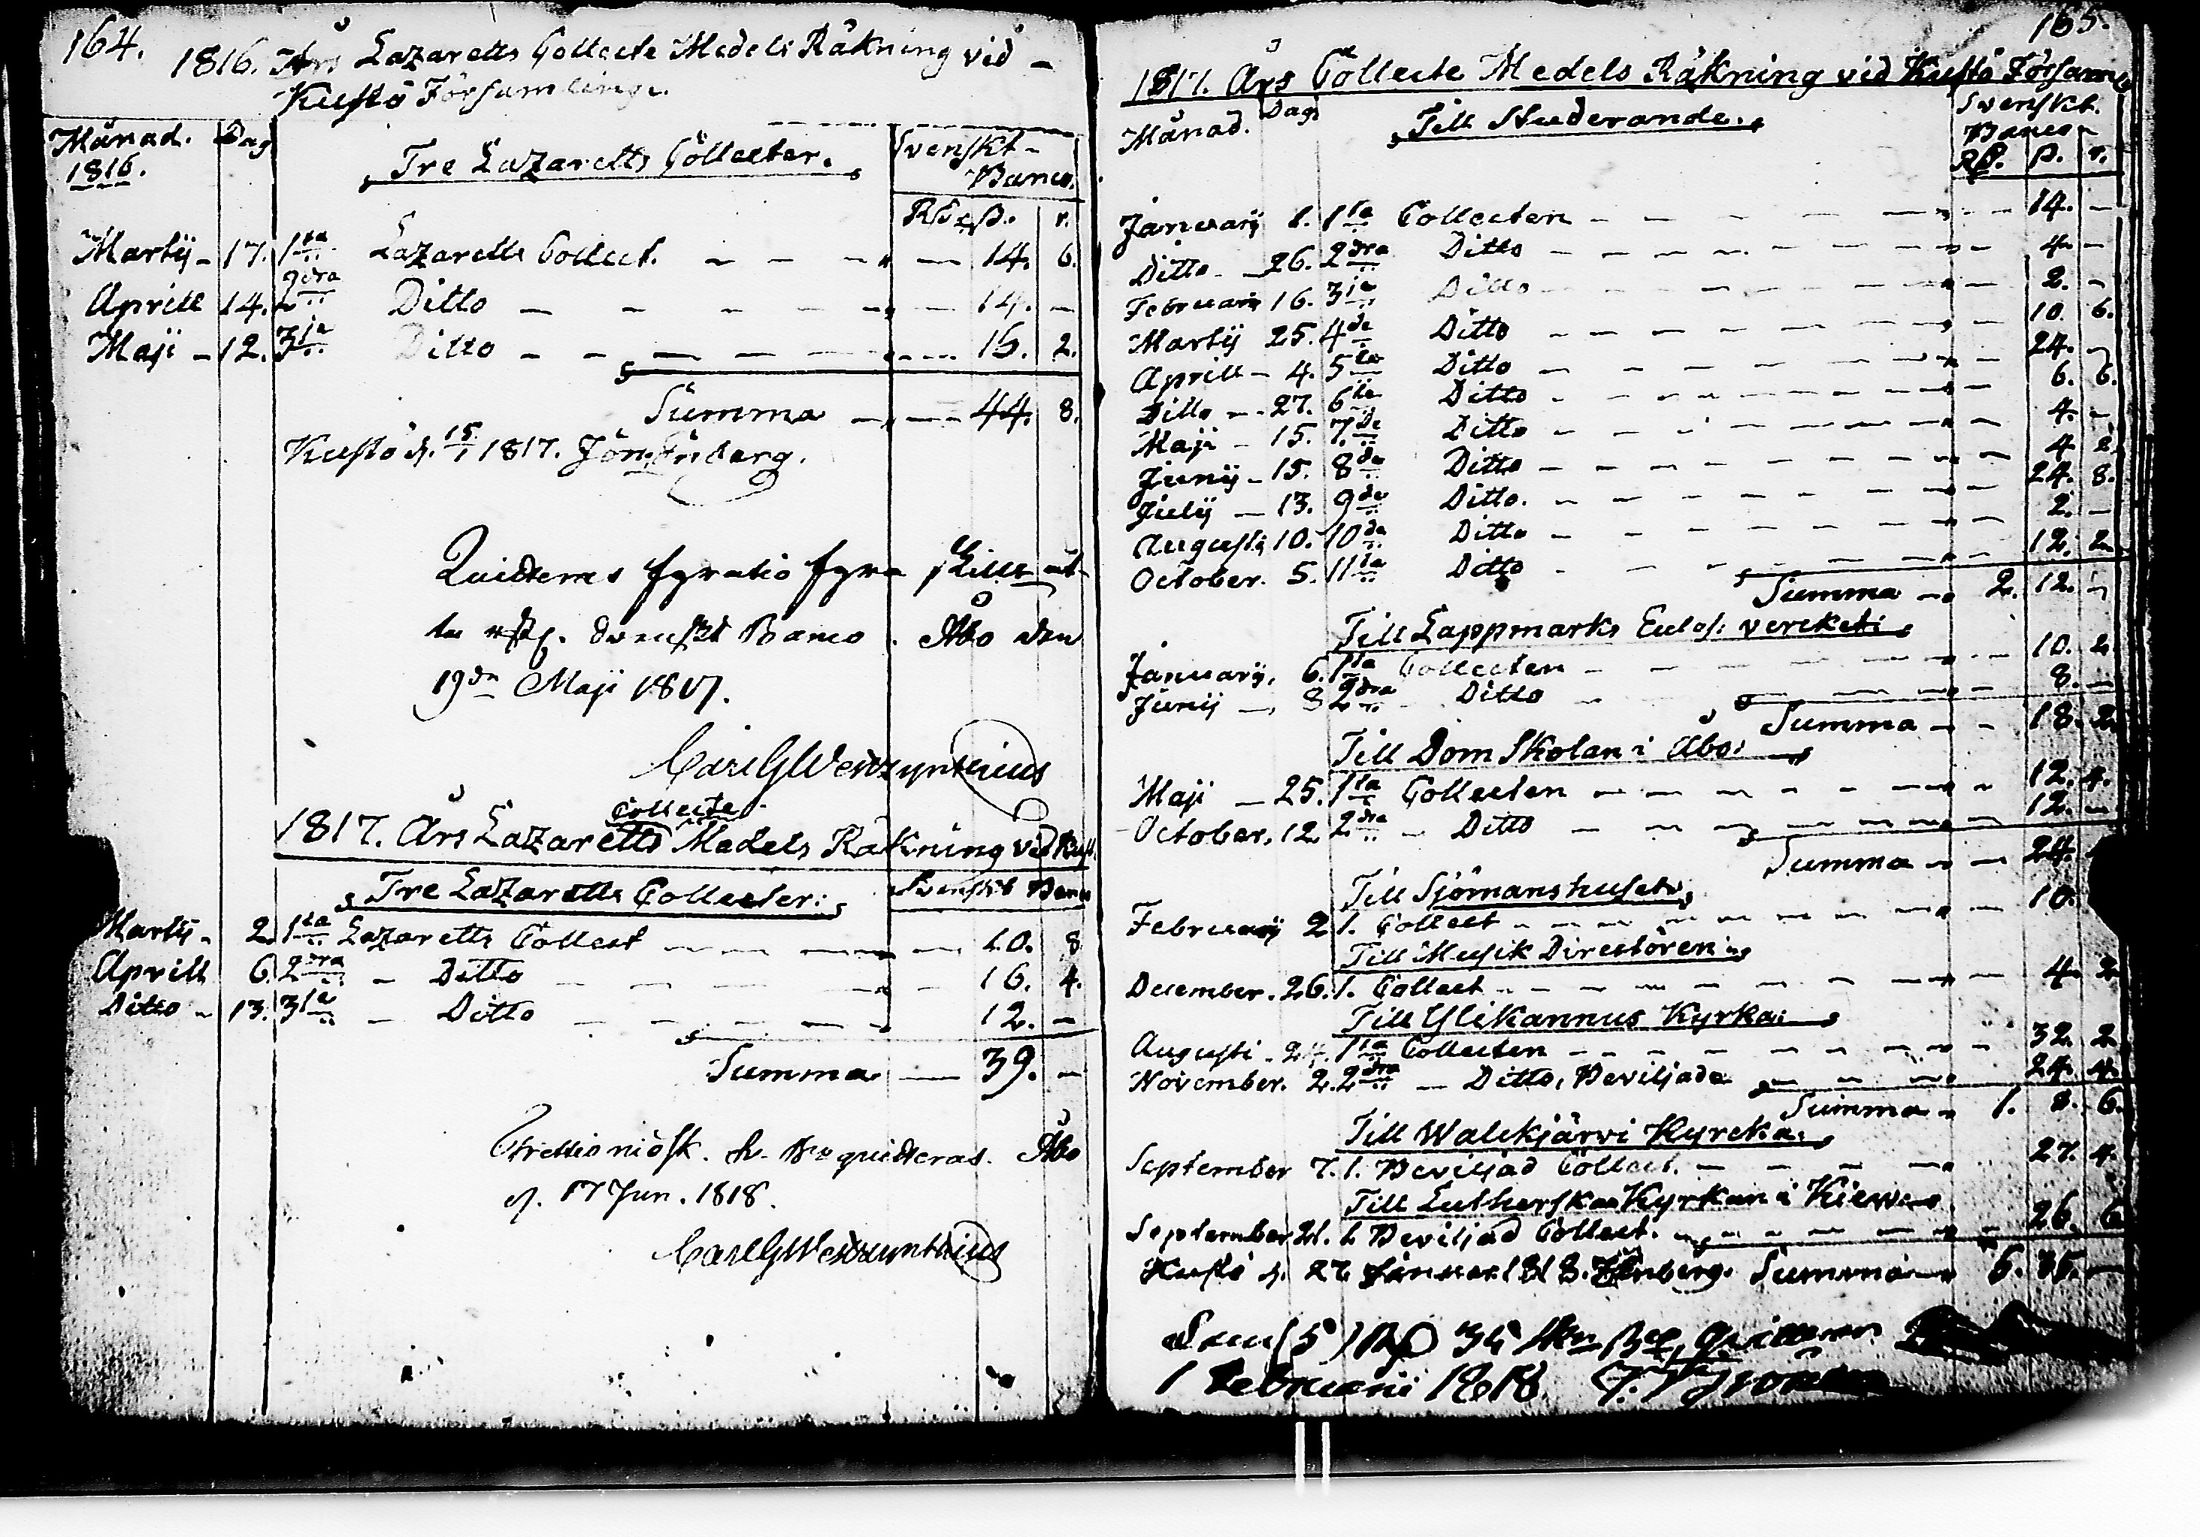 164.
1816. Års Lazaretts Collecte Medels Räkning vid
Kustö Församling.
Månad. Dag Svenskt
1816. Tre Lazaretts Collecter. Banco.
Rd. ß. r.
Martij 17. 1sta Lazaretts Collect. 14. 6.
Aprill 14. 2dra Ditto 14. –
Maji 12. 3je Ditto 16. 2.
Summa 44. 8.
Kustö d. 15/1 1817.
Quitteras fyratio fyra skill.
Svenskt Banco. Åbo den
19de Maji 1817.
Carl G Westzynthius
Collecte
1817. Års Lazaretts Medels Räkning vid Kust.
Tre Lazaretts Collecter: Svenskt Banco
Martij 2. 1sta Lazaretts Collect 10. 8
Aprill 6. 2dra Ditto 16. 4.
Ditto 13. 3je Ditto 12. –
Summa 39. –
Trettionio sk. quitteras. Åbo
d. 17 Jun. 1818.
Carl G Westzynthius
165.
1817. Års Collecte Medels Räkning vid Kustö Församl
Månad. Dag Till Studerande. Svenskt.
Banco
Rd. ß. r.
Januarij 1. 1sta Collecten 14. –
Ditto 26. 2dra Ditto 4. –
Februarij 16. 3je Ditto 2. –
Martij 25. 4de Ditto 10. 6.
Aprill 4. 5te Ditto 24. –
Ditto 27. 6te Ditto 6. 6.
Maji 15. 7de Ditto 4. –
Junij 15. 8de Ditto 4. 2.
Julij 13. 9de Ditto. 24. 8.
Augusti 10. 10de Ditto 2. –
October. 5. 11te Ditto 12. 2.
Summa 2. 12. –
Till Lappmarks Eccles: vercket:
Januarij, 6. 1sta Collecten 10. 2
Junij 8 2dra Ditto 8. –
Summa 18. 2.
Till Dom Skolan i Åbo:
Maji 25. 1sta Collecten 12. 4.
October, 12 2dra Ditto 12. –
Summa 24.
Till Sjömanshuset
Februarij 2 1. Collect 10.
Till Musik Directören
December. 26. 1. Collect 4. 2.
Till Ylikannus Kyrka:
Augusti 24. 1sta Collecten 32. 2.
November. 2. 2dra Ditto, Beviljade 24. 4.
Summa 1. 8. 6.
Till Walckjärvi Kyrcka:
September 7. 1. Beviljad Collect. 27. 4.
Till Lutherska Kyrkan i Kiew
September 21. 1. Beviljad Collect. 26. 6
Kustö d. 27 Januar. 1818. Summa 5. 35. –
(5) Rd 35 sk Bco, Quitteras
1 Februarii 1818